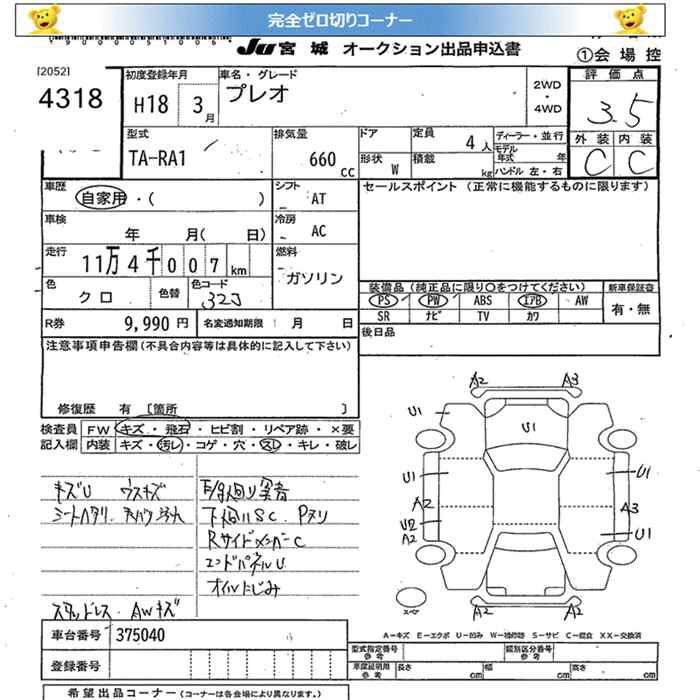 完全ゼロ切りコーナー
JU 宮城 オークション出品申込書
①会場控
[2052]
4318
初度登録年月
H18 3月
車名・グレード
プレオ
2WD
・
4WD
評価点
3.5
外装 内装
C C
型式
TA-RA1
排気量
660 CC
ドア
形状 W
定員 4人
積載 kg
ディーラー・並行
モデル年式 年
ハンドル 左・右
車歴
自家用・( )
シフト
AT
セールスポイント (正常に機能するものに限ります)
車検
年 月( 日)
冷房
AC
走行
11万4千007km
燃料
ガソリン
色
クロ
色替
色コード
32J
装備品 (純正品に限り○をつけてください)
PS PW ABS エアB AW
SR ナビ TV カワ
新車保証書
有・無
R券 9,990円 名変通知期限 月 日
後日品
注意事項申告欄(不具合内容等は具体的に記入して下さい)
修復歴 有 [箇所 ]
検査員 記入欄
FW キズ・飛石・ヒビ割・リペア跡・×要
内装 キズ・汚レ・コゲ・穴・スレ・キレ・破レ
キズU ウスキズ
シートヘタリ
スタッドレス AWキズ
下回りSC Pスリ
RサイドメンバーC
エンドパネルU
オイルにじみ
A2 A3
U1
U1
U1 U1
A2 A3
U2
A2
U1
スペア
A2 A2
A-キズ E-エクボ U-凹み W-補修跡 S-サビ C-腐食 XX-交換済
車台番号 375040
登録番号
型式指定番号 参考
類別区分番号 参考
車庫証明用 参考 長さ cm 幅 cm 高さ cm
希望出品コーナー (コーナーは各会場により異なります。)